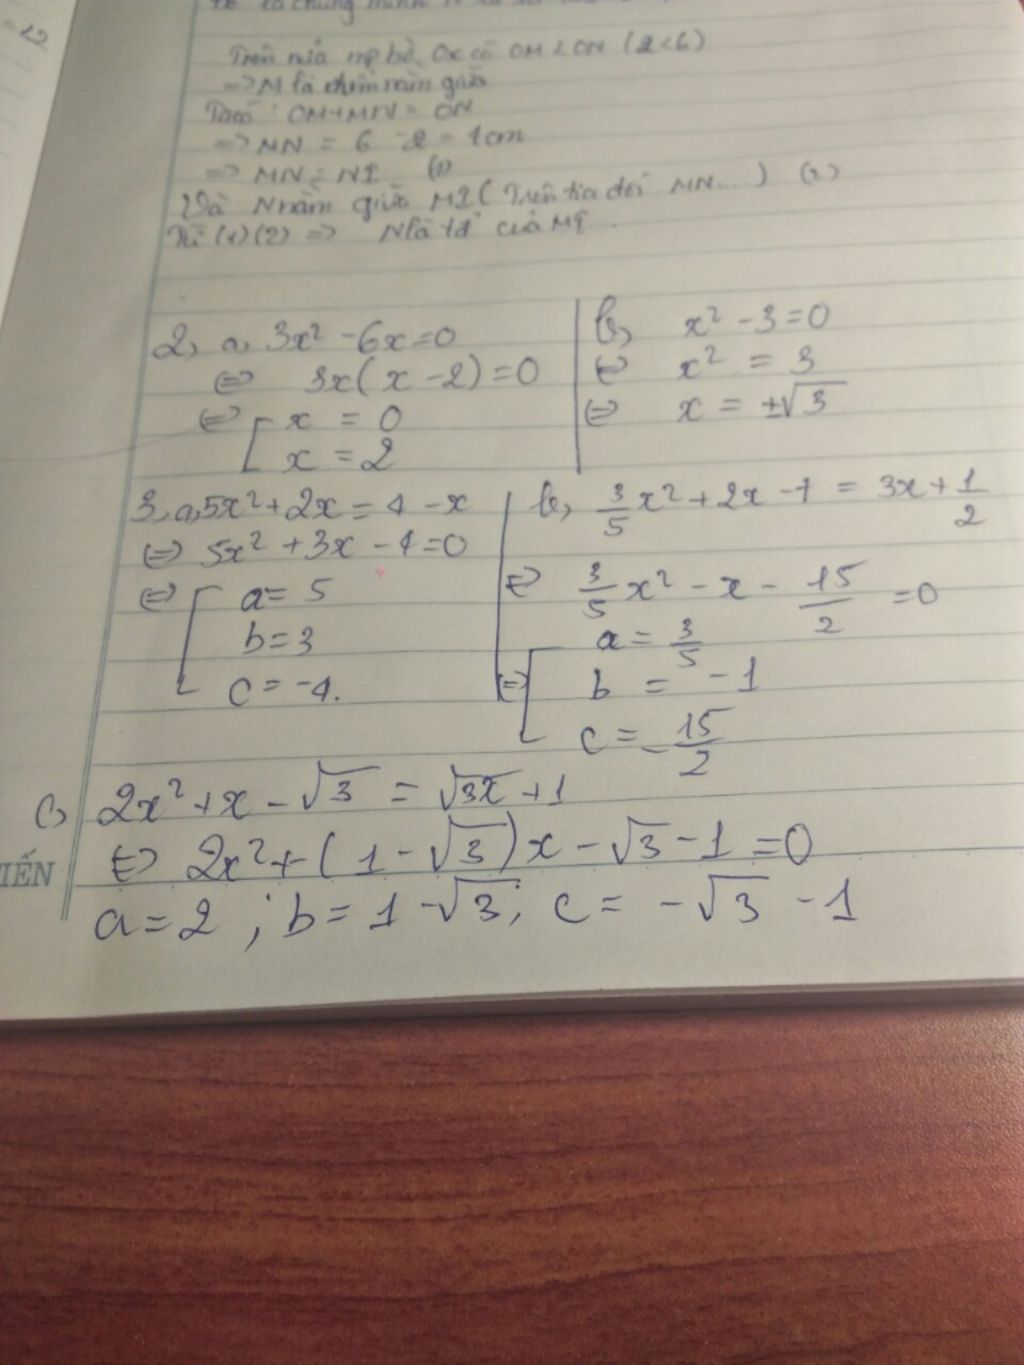 =12
Trên nửa mp bờ Ox có OM < ON (2<6)
=> M là điểm nằm giữa
Ta có: OM+MN = ON
=> MN = 6 - 2 = 4cm
=> MN = NI (1)
Và N nằm giữa MI (Trên tia đối MN...) (2)
Từ (1)(2) => N là tđ của MI.
2, a, 3x² - 6x = 0
<=> 3x(x - 2) = 0
<=> [ x = 0
x = 2
b, x² - 3 = 0
<=> x² = 3
<=> x = ±√3
3, a, 5x² + 2x = 4 - x
<=> 5x² + 3x - 4 = 0
<=> [ a = 5
b = 3
c = -4.
b, 3/5 x² + 2x - 7 = 3x + 1/2
<=> 3/5 x² - x - 15/2 = 0
<=> [ a = 3/5
b = -1
c = -15/2
c) 2x² + x - √3 = √3x + 1
<=> 2x² + (1 - √3)x - √3 - 1 = 0
a = 2 ; b = 1 - √3; c = -√3 - 1
IẾN